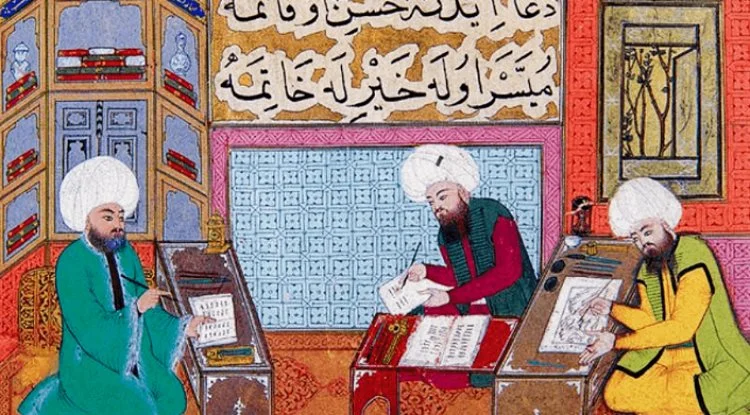 دعا ایدنه حُسنِ وفاتمه
مُیَسَّر اوله خَیْرِله خَاتِمَه